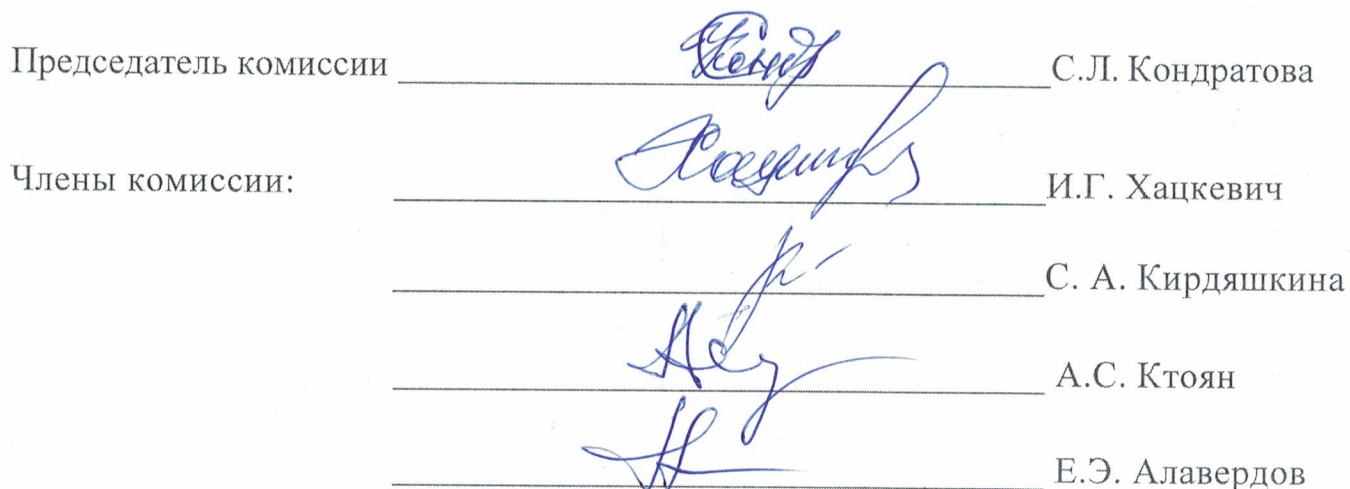 Председатель комиссии С.Л. Кондратова
Члены комиссии: И.Г. Хацкевич
С. А. Кирдяшкина
А.С. Ктоян
Е.Э. Алавердов